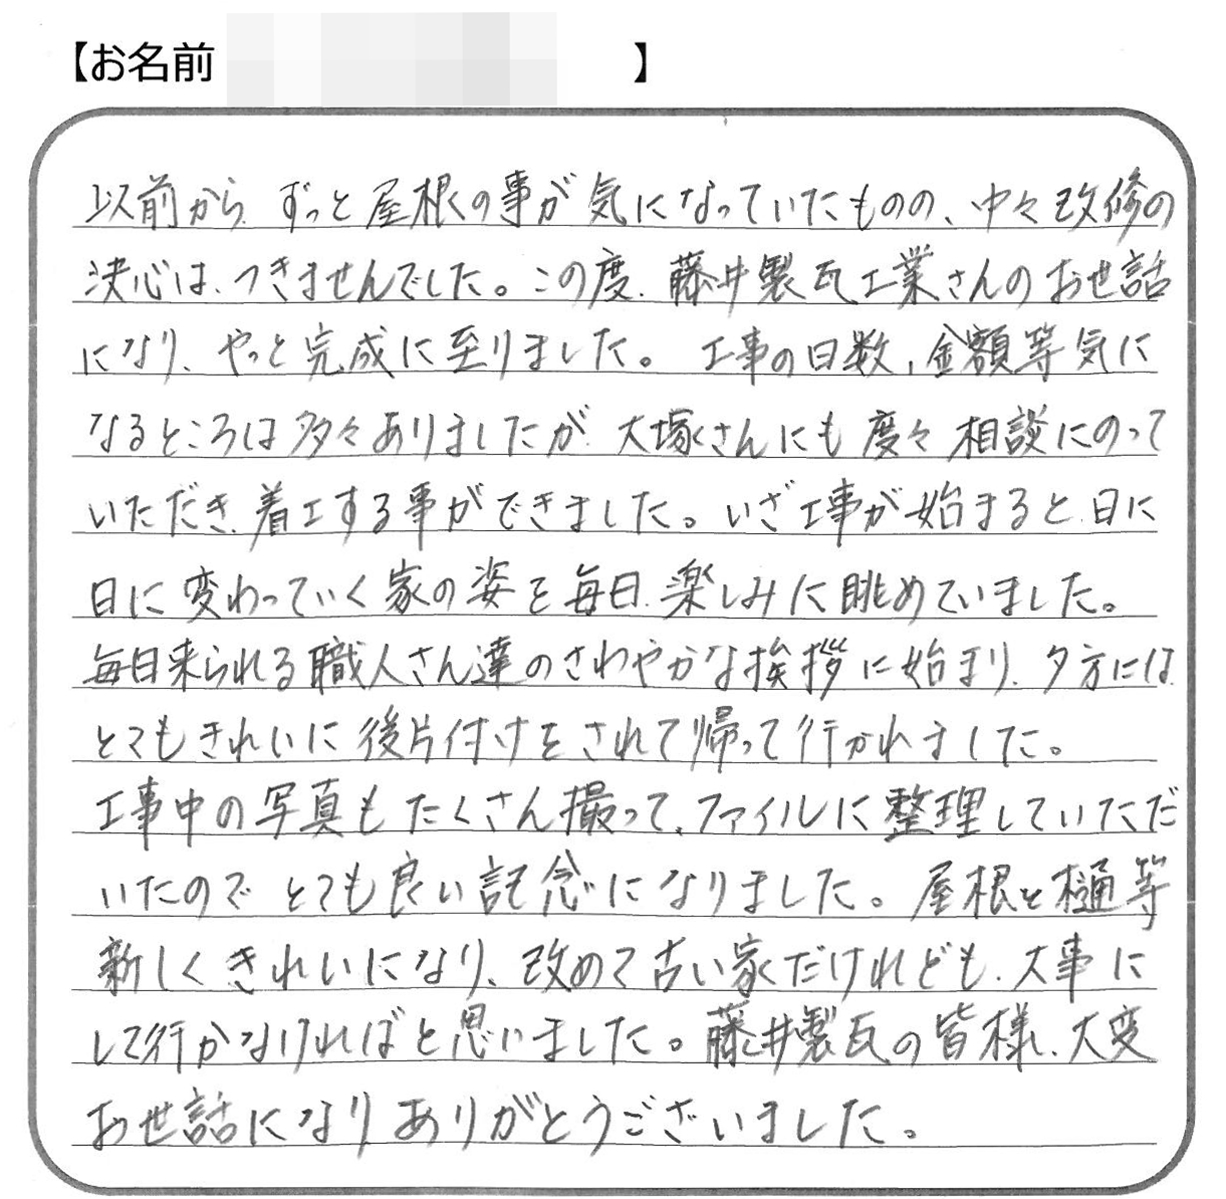 【お名前 】
以前から、ずっと屋根の事が気になっていたものの、中々改修の
決心は、つきませんでした。この度、藤井製瓦工業さんのお世話
になり、やっと完成に至りました。 工事の日数、金額等気に
なるところは多々ありましたが、大塚さんにも度々相談にのって
いただき、着工する事ができました。いざ工事が始まると、日に
日に変わっていく家の姿を毎日、楽しみに眺めていました。
毎日来られる職人さん達のさわやかな挨拶に始まり、夕方には、
とてもきれいに後片付けをされて帰って行かれました。
工事中の写真もたくさん撮って、ファイルに整理していただ
いたのでとても良い記念になりました。屋根と樋等
新しくきれいになり、改めて古い家だけれども、大事に
して行かなければと思いました。藤井製瓦の皆様、大変
お世話になりありがとうございました。